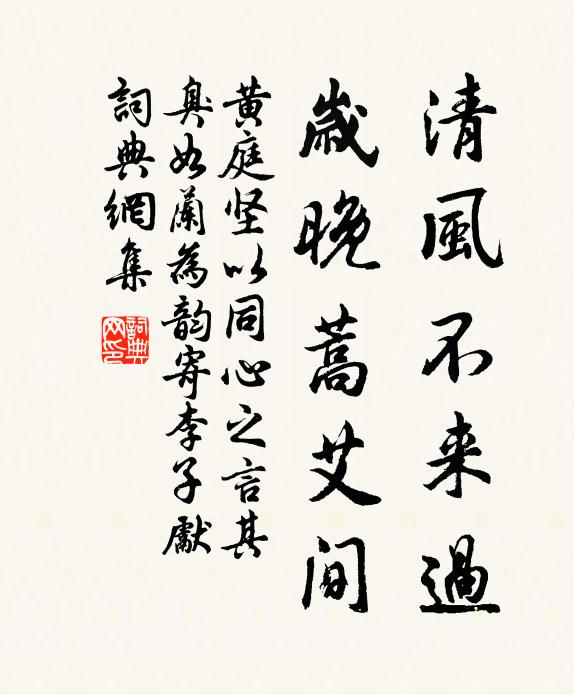 清風不来過
歲晚蒿艾間
黄庭坚以同心之言其
臭如蘭為韵寄李子獻
詞典網集
詞典网印